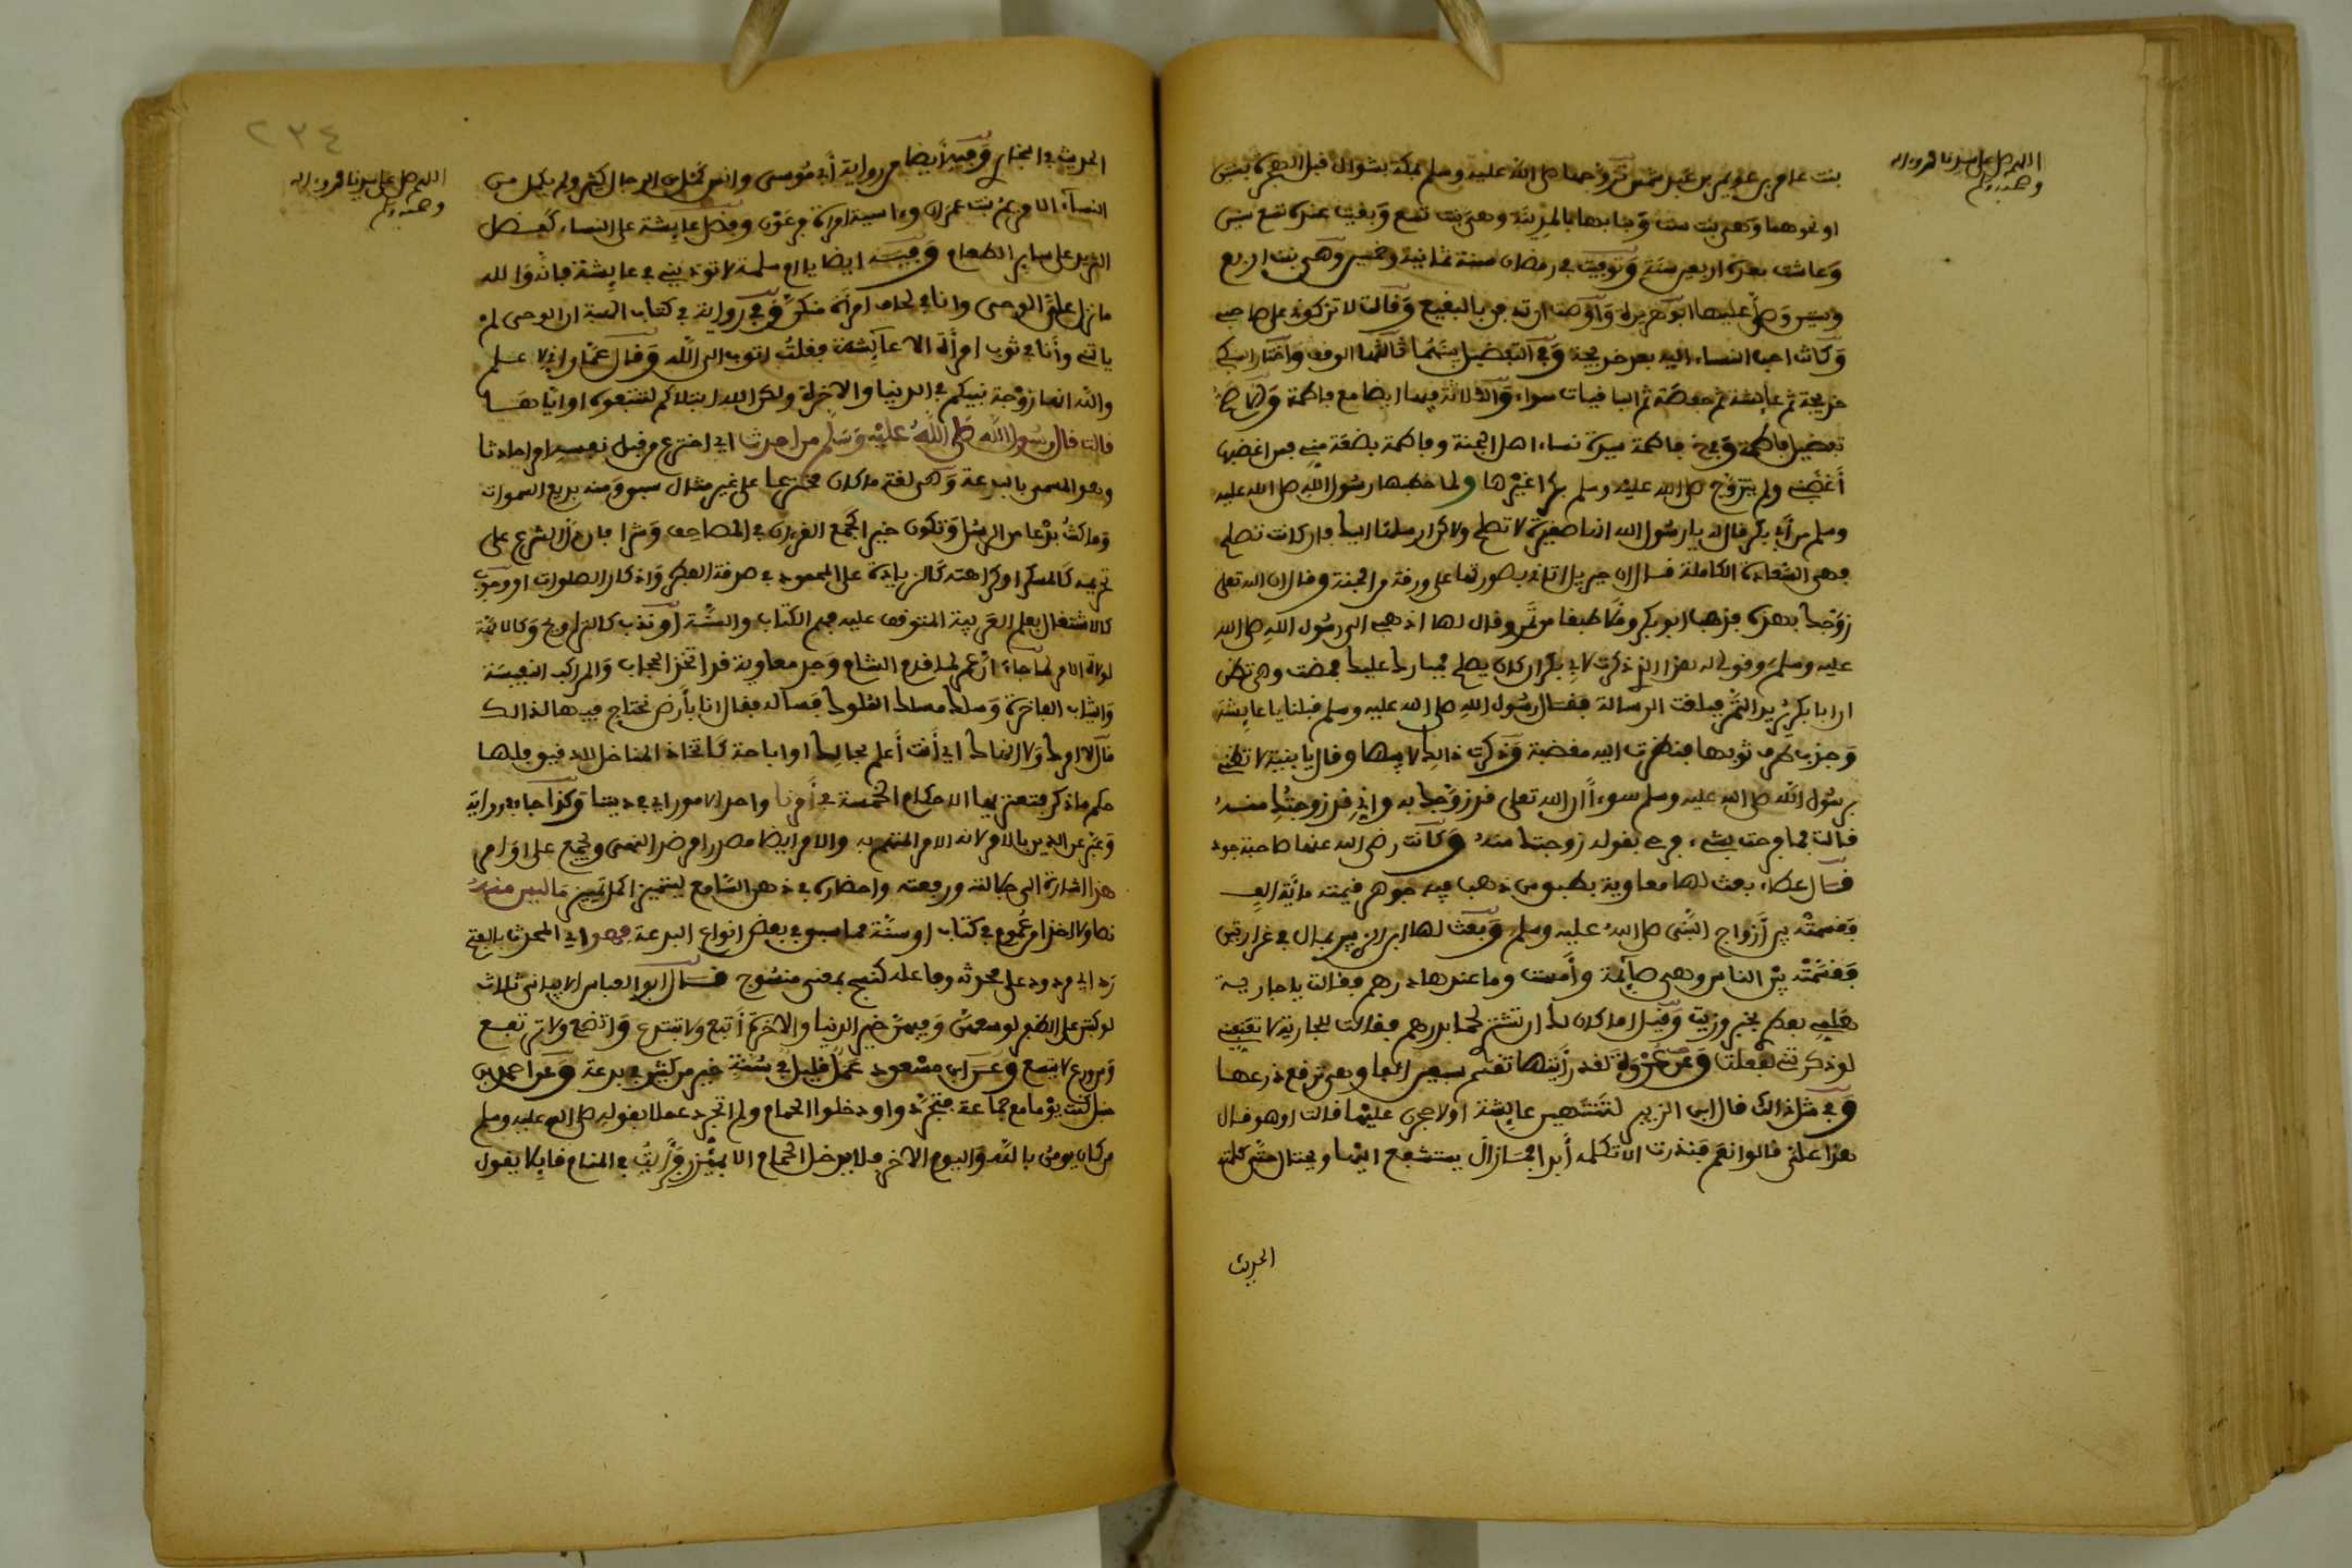 اللهم صل على سيدنا محمد وءاله
وصحبه وسلم
بنت عامر بن عويمر بن عبد شمس تزوجها صلى الله عليه وسلم بمكة بشوال قبل الهجرة بسنتين
او نحوهما وهي بنت ست وبنا بها بالمدينة وهي بنت تسع وبقيت عنده تسع سنين
وعاشت بعده اربعين سنة وتوفيت في رمضان سنة ثمانية وخمسين وهي بنت اربع
وستين وصلى عليها ابو هريرة وأوصت ان تدفن بالبقيع وقالت لا تزكوني على صاحبي
وكانت احب النساء اليه بعد خديجة وفي التفضيل بينهما ثالثها الوقف واختار السبكي
خديجة ثم عايشة ثم حفصة ثم الباقيات سواء والثلاثة فيها ايضا مع فاطمة
تفضيل فاطمة فاطمة سيدة نساء اهل الجنة وفاطمة بضعة مني فمن اغضبها
أغضبني ولم يتزوج صلى الله عليه وسلم بكرا غيرها ولما خطبها رسول الله صلى الله عليه
وسلم من أبي بكر قال له يا رسول الله انها صغيرة لا تصلح ولاكن ارسلها اليك فان كانت تصلح
فهي السعادة الكاملة فقال ان جبريل اتاني بصورتها على ورقة من الجنة وقال ان الله تعلى
زوجك بهذه فذهب ابو بكر وملأ طبقا من تمر وقال لها اذهبي الى رسول الله صلى الله
عليه وسلم وقولي له هذا الذي ذكرت لابي بكر ان كان يصلح فبارك عليك فمضت وهي تظن
ان ابا بكر يريد التمر فبلغت الرسالة فقال رسول الله صلى الله عليه وسلم قبلنا يا عايشة
وجذب طرف ثوبها فنظرت اليه مغضبة وذكرت ذالك لابيها وقال يا بنية لا تظني
برسول الله صلى الله عليه وسلم سوءا ان الله تعلى قد زوجك به واني قد زوجتك منه
قالت فما فرحت بشيء فرحي بقوله زوجتك منه وكانت رضي الله عنها صاحبة جود
قال عطاء بعث لها معاوية بطبق من ذهب فيه جوهر قيمته ماية الف
فقسمته بين أزواج النبي صلى الله عليه وسلم وبعث لها ابن الزبير بمال في غرارتين
فقسمته بين الناس وهي صايمة وأمست وما عندها درهم فقالت يا جارية
هلمي فطري بخبز وزيت وقيل اما كان لك ان تشتري لحما بدرهم فقالت للجارية لا تعيبيني
لو ذكرتني لفعلت وعن عروة لقد رأيتها تقسم سبعين الفا وهي ترفع ذرعها
وفي مثل ذالك قال ابن الزبير لتنتهين عايشة او لاحجرن عليها قالت اوهو قال
هذا علي قالوا نعم فنذرت الا تكلمه أبدا فما زال يستشفع اليها ويحتال حتى كلمته
الحديث
٢٣٤
اللهم صل على سيدنا محمد وءاله
وصحبه وسلم
الحديث في البخاري وفيه أيضا من رواية أبي موسى وانس كمل من الرجال كثير ولم يكمل من
النساء الا مريم بنت عمران وءاسية امرأة فرعون وفضل عايشة على النساء كفضل
الثريد على ساير الطعام وفيه ايضا يا ام سلمة لا توذيني في عايشة فانه والله
ما نزل علي الوحي وانا في لحاف امرأة منكن وفي رواية في كتاب الهبة ان الوحي لم
ياتني وأنا في ثوب امرأة الا عايشة فقلت اتوب الى الله وقال عمار اني لاعلم
والله انها زوجة نبيكم في الدنيا والاخرة ولكن الله ابتلاكم لتتبعوه او اياها
قالت قال رسول الله صلى الله عليه وسلم من احدث اي اخترع من قبل نفسه امرا حادثا
وهو المسمى بالبدعة وهي لغة ما كان مخترعا على غير مثال سبق ومنه بديع السموات
وما كنت بدعا من الرسل وتكون خيرا كجمع القرءان في المصاحف وشرا فان دل الشرع على
تحريمه كالمسكر او كراهته كالزيادة على المعهود في صدقة الفطر واذكار الصلوات او وجوب
كالاشتغال بعلم العربية المتوقف عليه فهم الكتاب والسنة او ندب كالتراويح وكالائمة
لولاة الامر لما جاء أن عمر لما قدم الشام وجد معاوية قد اتخذ الحجاب والمراكب النفيسة
والثياب الفاخرة وسلك مسلك الملوك فسأله فقال انا بأرض نحتاج فيها لذالك
قال لا امرك ولا انهاك اي أنت أعلم بحالك او اباحة كاتخاذ المناخل للدقيق فلها
حكم ما ذكر فتعتريها الاحكام الخمسة في أمرنا واحد الامور اي في ديننا وكذا جا في رواية
وعبر عن الدين بالامر لانه الامر المهتم به والامر ايضا مصدر امر ضد النهي ويجمع على اوامر
هذا اشارة الى جلالته ورفعته واحضاره في ذهن السامع ليتميز اكمل تمييز ما ليس منه
نصا ولا دخل في عموم في كتاب او سنة مما سبق في بعض انواع البدعة فهو اي المحدث بالفتح
رد اي مردود على محدثه وفاعله كنسج بمعنى منسوج قال ابو العباس الابياني ثلاث
لو كتبن على الظفر لوسعهن وفيهن خير الدنيا والاخرة أتبع ولا تبتدع واتضع ولا ترتفع
ومن ورع لا يتسع وعن ابن مسعود عمل قليل في سنة خير من كثير في بدعة وعن احمد بن
حنبل كنت يوما مع جماعة فتجردوا ودخلوا الحمام ولم اتجرد عملا بقوله صلى الله عليه وسلم
من كان يومن بالله واليوم الاخر فلا يدخل الحمام الا بميزر فرأيت في المنام قايلا يقول